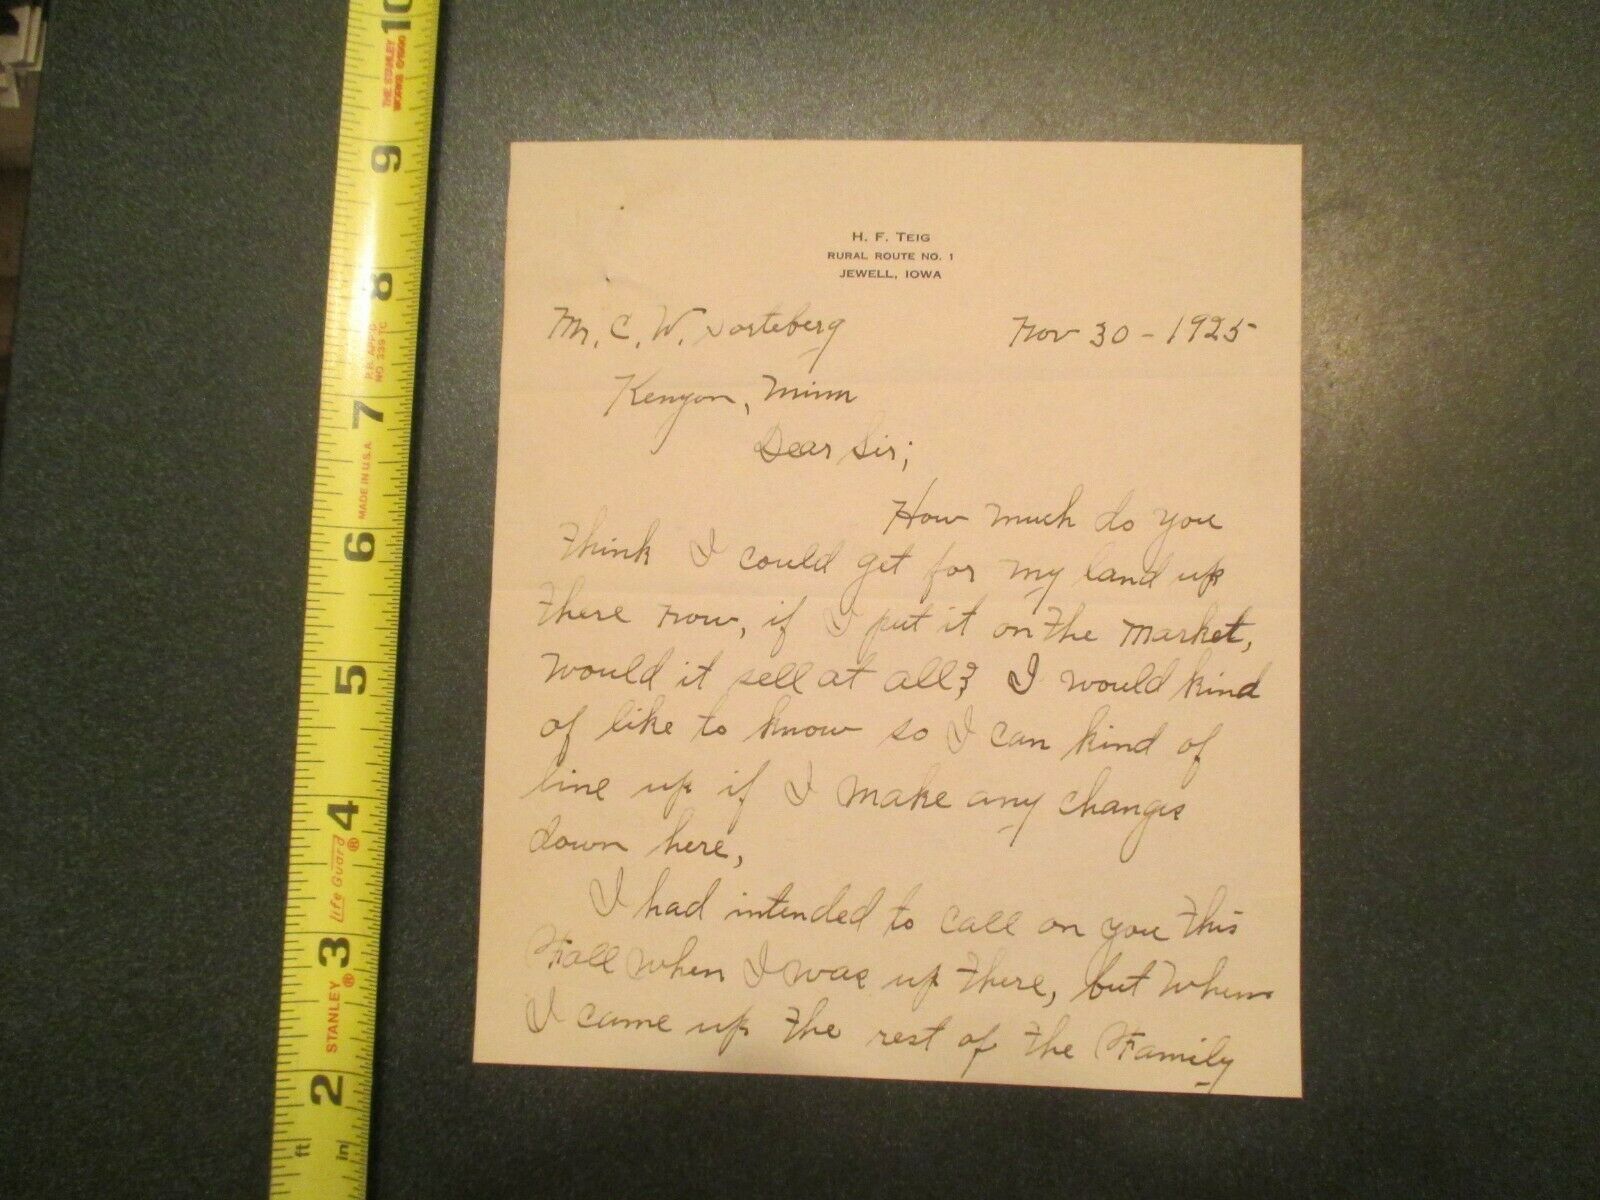 H. F. TEIG
RURAL ROUTE NO. 1
JEWELL, IOWA
Mr. C. W. Sorteberg Nov 30 - 1925
Kenyon, Minn
Dear Sir;
How much do you
think I could get for my land up
there now, if I put it on the market,
would it sell at all? I would kind
of like to know so I can kind of
line up if I make any changes
down here,
I had intended to call on you this
Fall when I was up there, but when
I came up the rest of the Family
10
9
8
7
6
5
4
3
2
ft
in
THE STANLEY
WORKS ©1990
NO. 33
MADE IN U.S.A.
Life Guard®
STANLEY®